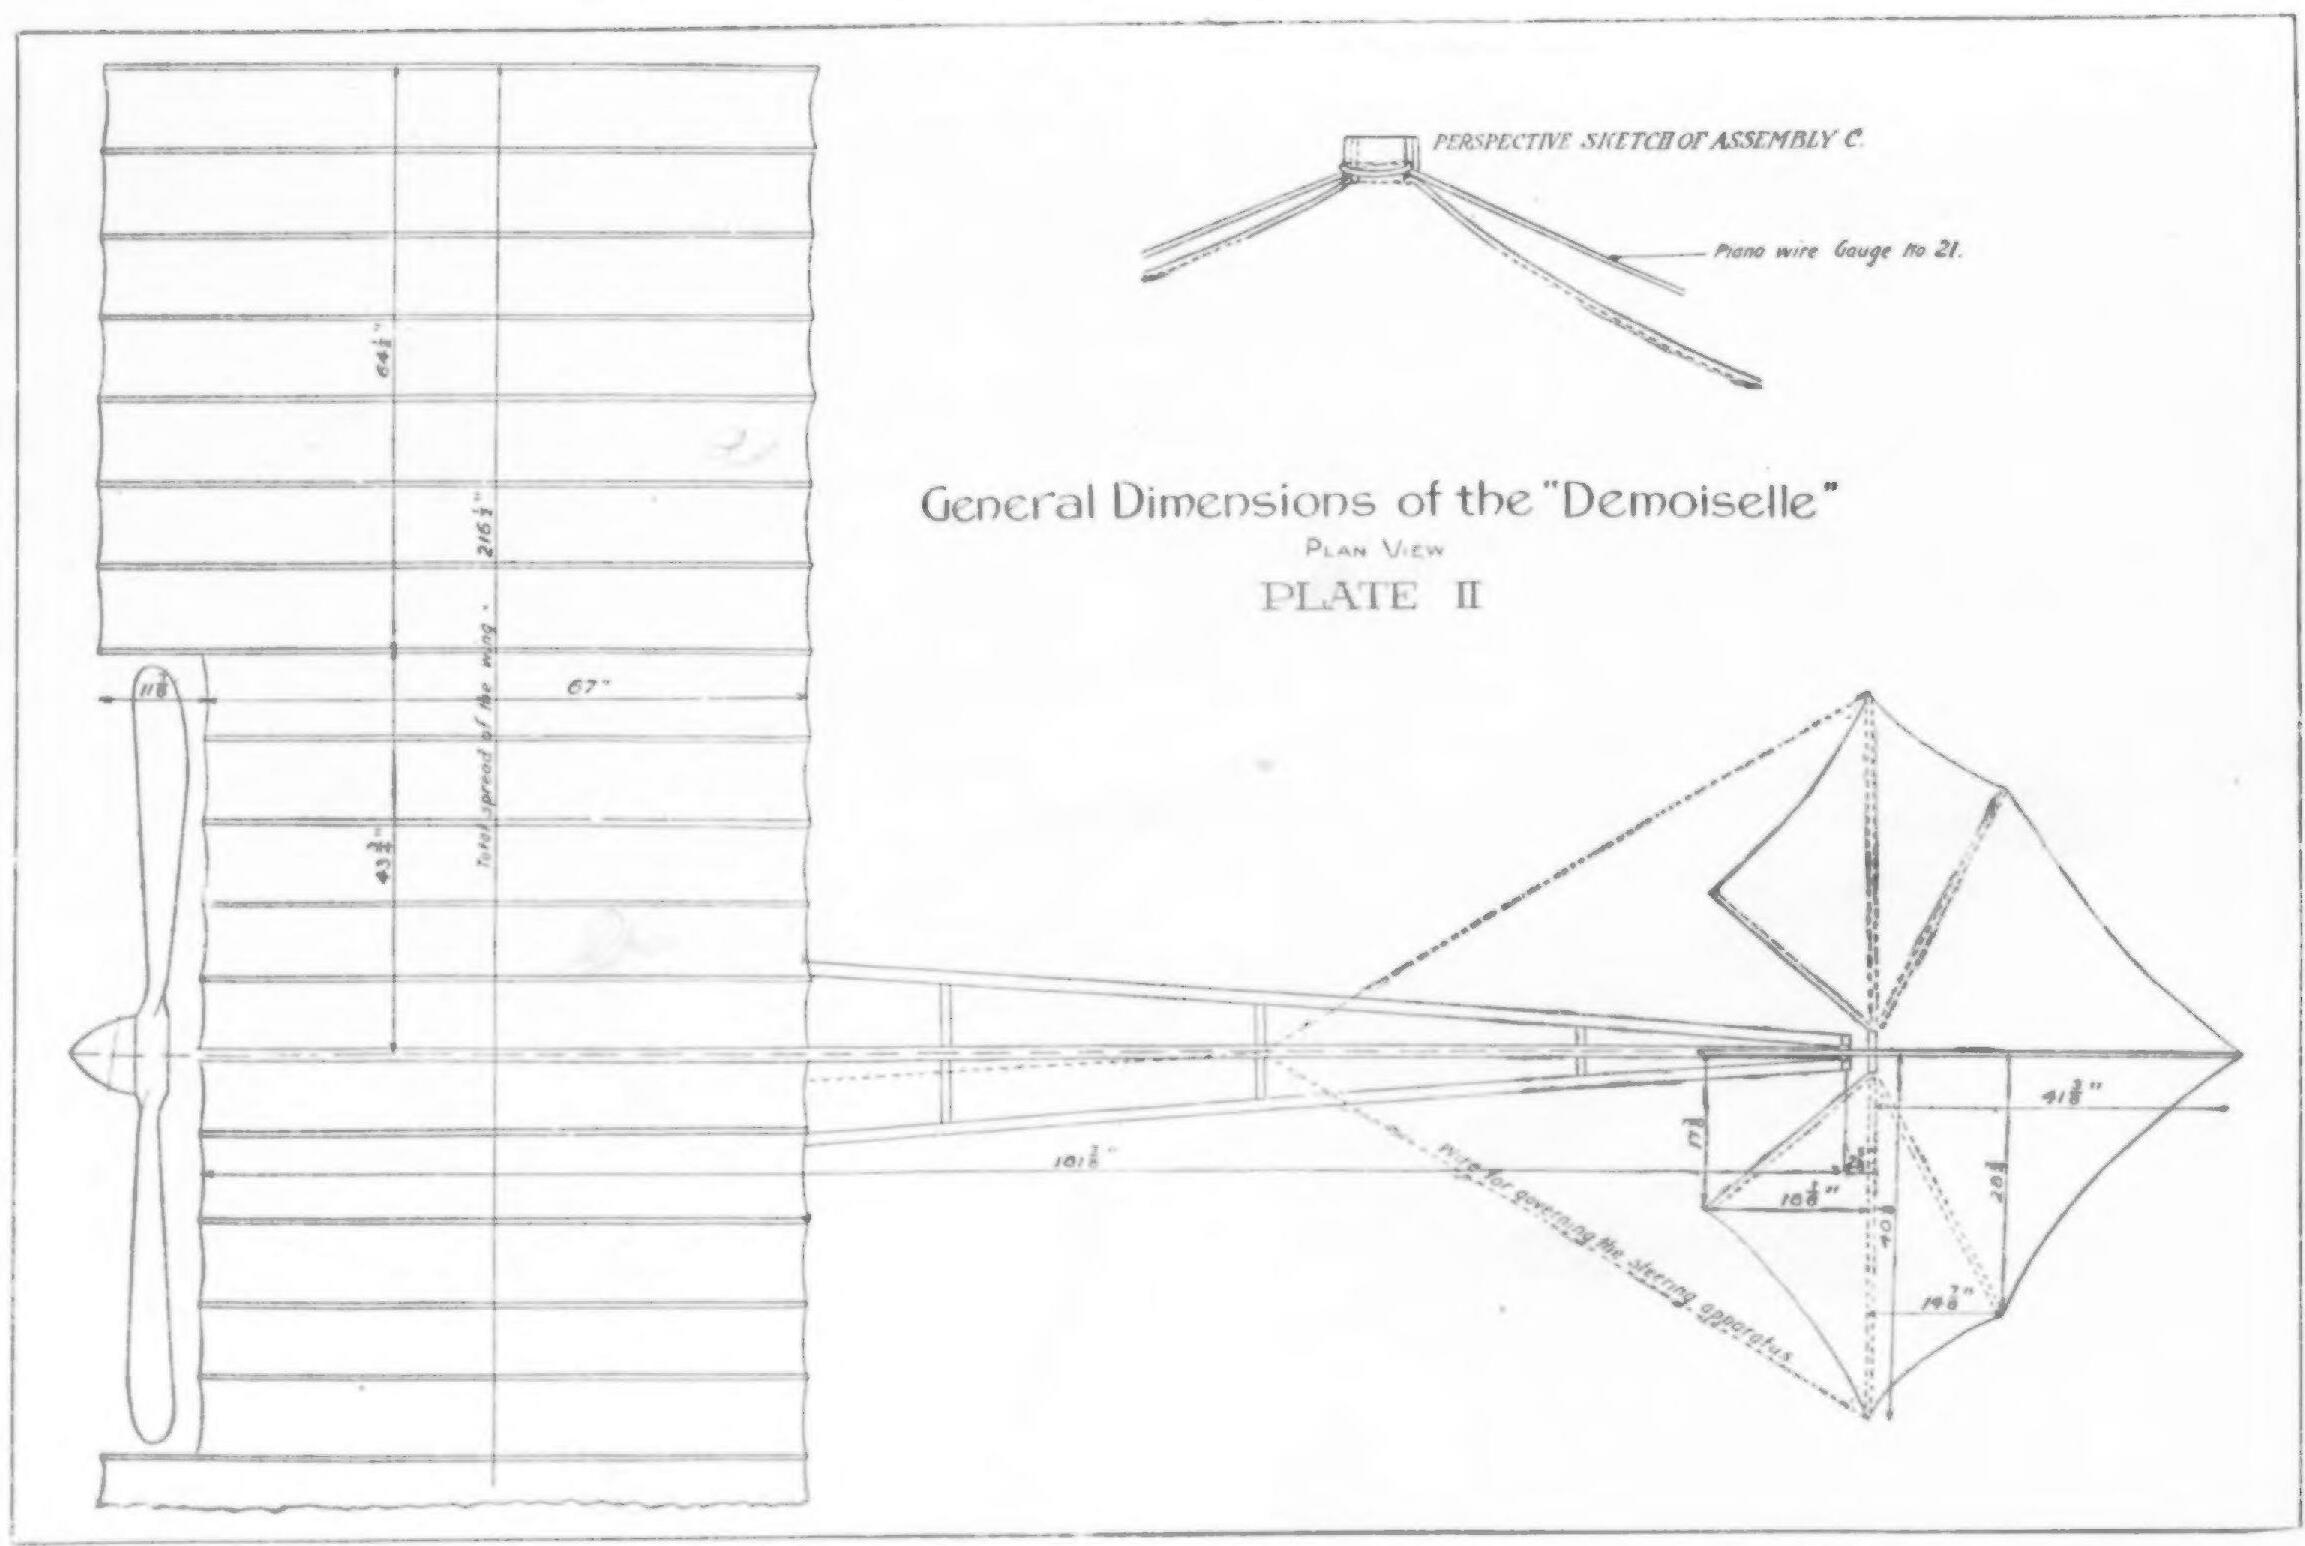 PERSPECTIVE SKETCH OF ASSEMBLY C.
Piano wire Gauge No 21.
General Dimensions of the "Demoiselle"
PLAN VIEW
PLATE II
64 1/2"
Total spread of the wing. 216 1/2"
67"
43 3/4"
41 3/8"
18 1/8"
14 7/8"
Wire for governing the steering apparatus